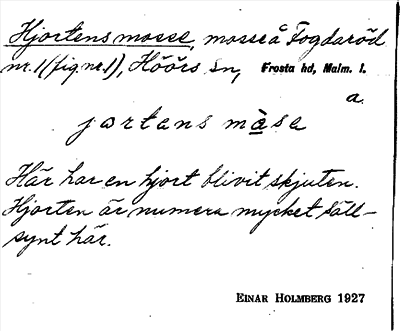 Hjortens mosse, mosse å Fogdaröd
nr. 1 (fig. nr. 1), Höörs sn, Frosta hd, Malm. l.
a.
jortens màse
Här har en hjort blivit skjuten.
Hjorten är numera mycket säll-
synt här.
EINAR HOLMBERG 1927